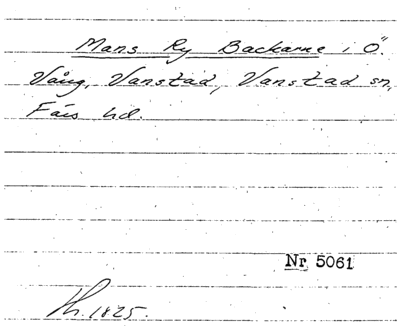 Mans Ry Backarne i Ö.
Vång, Vanstad, Vanstad sn,
Färs hd.
Nr 5061
Th. 1825.